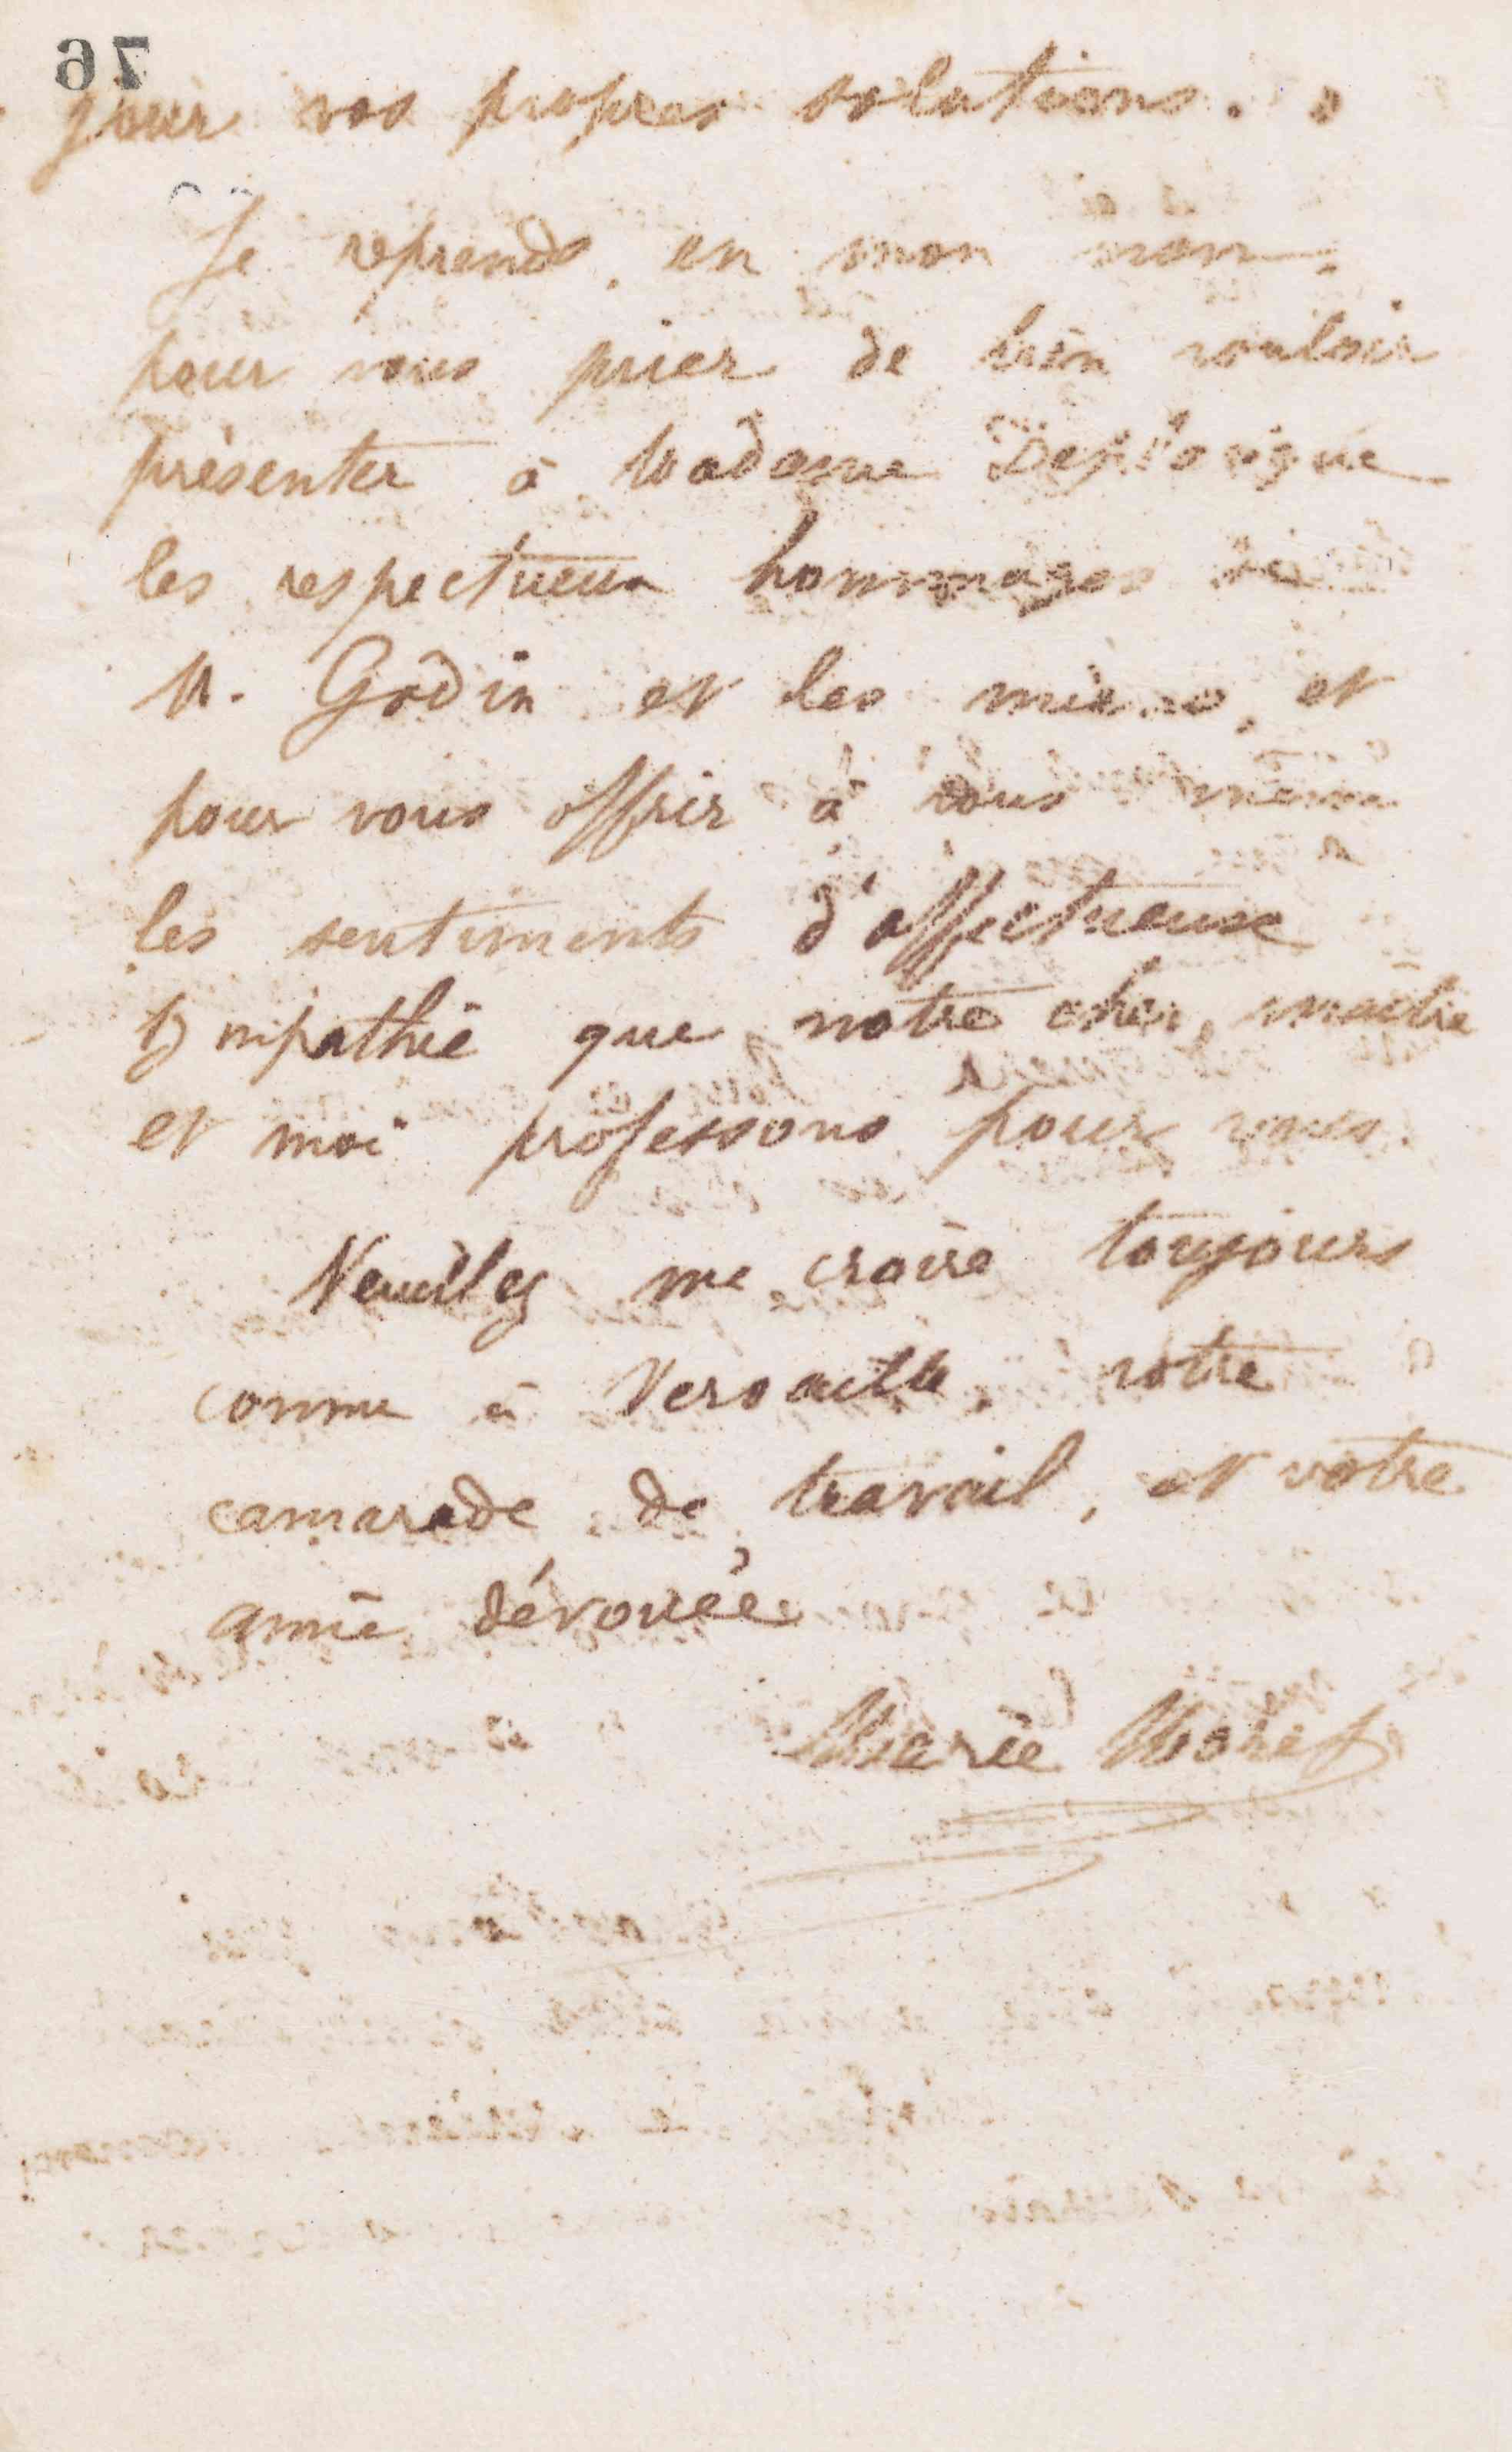 76
pour vos propres solutions. »
Je reprends en mon nom,
pour vous prier de bien vouloir
présenter à Madame
les respectueux hommages de
M. Godin et les miens, et
pour vous offrir à vous même
les sentiments d'affectueuse
sympathie que notre cher maître
et moi professons pour vous.
Veuillez me croire toujours
comme à Versailles, votre
camarade de travail, et votre
amie dévouée
Marie Moret